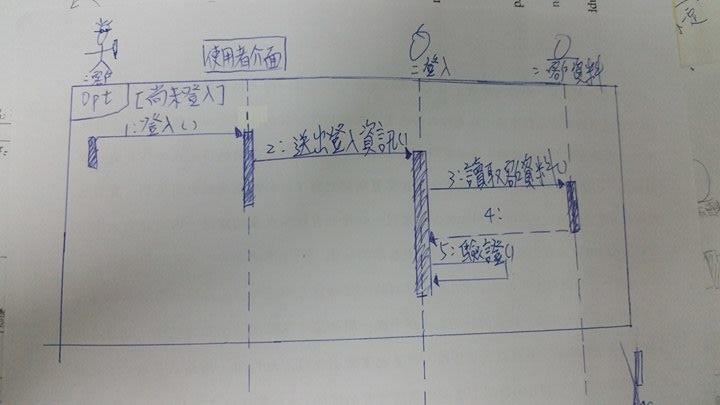 使用者介面
:登入
Opt [尚未登入]
1:登入()
2:送出登入資訊()
3:讀取客資料()
4:
5:驗證()